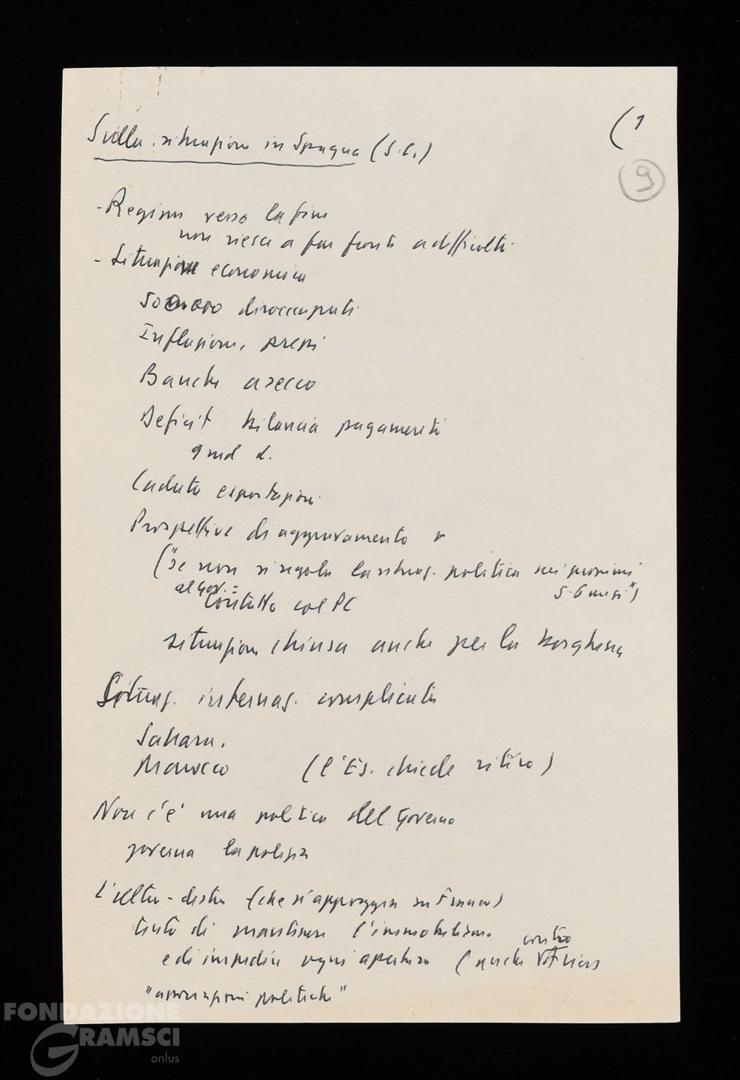 Sulla situazione in Spagna (S.C.) (1
9
- Regime verso la fine
non riesce a far fronte a difficoltà
- Situazione economica
disoccupati
Inflazione, prezzi
Banche a secco
Deficit bilancia pagamenti
9 md d.
Caduta esportazioni
Prospettive di aggravamento
("se non si regola la situaz. politica nei prossimi
5-6 mesi")
contatto col PC
situazione chiusa anche per la borghesia
Situaz. internaz. complicata
Sahara.
Marocco (l'Es. chiede ritiro)
Non c'è una politica del Governo
governa la polizia
L'ultra-destra (che si appoggia su Franco)
tenta di mantenere l'immobilismo
contro
e di impedire ogni apertura (anche
"associazioni politiche"
FONDAZIONE
GRAMSCI
onlus